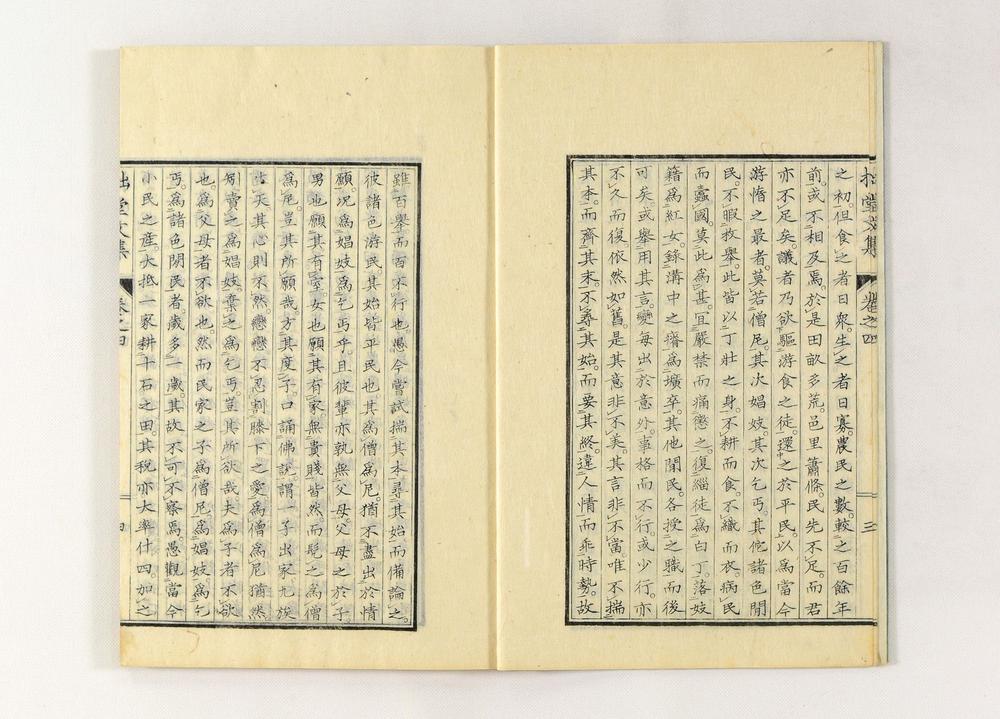 拙堂文集 卷之四 三
之初。但食之者日衆。生之者日寡。農民之數。較之百餘年
前。或不相及焉。於是田畝多荒。邑里蕭條。民先不足。而君
亦不足矣。議者乃欲驅游食之徒。還之於平民。以爲當今
游惰之最者。莫若僧尼。其次娼妓。其次乞丐。其佗諸色閒
民。不暇枚擧。此皆以丁壯之身。不耕而食。不織而衣。病民
而蠹國。莫此爲甚。宜嚴禁而痛懲之。復緇徒爲白丁。落妓
籍爲紅女。錄溝中之瘠。爲壙卒。其他閒民。各授之職。而後
可矣。或擧用其言。變每出於意外。事格而不行。或少行。亦
不久而復依然如舊。是其意非不美。其言非不當。唯不揣
其本。而齊其末。不尋其始。而要其終。違人情而乖時勢。故
雖百擧而百不行也。愚今嘗試揣其本。尋其始。而備論之。
彼諸色游民。其始皆平民也。其爲僧爲尼。猶不盡出於情
願。况爲娼妓。爲乞丐乎。且彼輩亦孰無父母。父母之於子
男也願其有室。女也願其有家。無貴賤皆然。而髡之爲僧
爲尼。豈其所願哉。方其度子。口誦佛說。謂一子出家九族
生天。其心則不然。戀戀不忍割膝下之愛。爲僧爲尼猶然
矧賣之爲娼妓。棄之爲乞丐。豈其所欲哉。夫爲子者不欲
也。爲父母者不欲也。然而民家之子。爲僧尼。爲娼妓。爲乞
丐。爲諸色閒民者。歲多一歲。其故不可不察焉。愚觀當今
小民之產。大抵一家耕十石之田。其稅亦大率什四加之
拙堂文集 卷之四 四